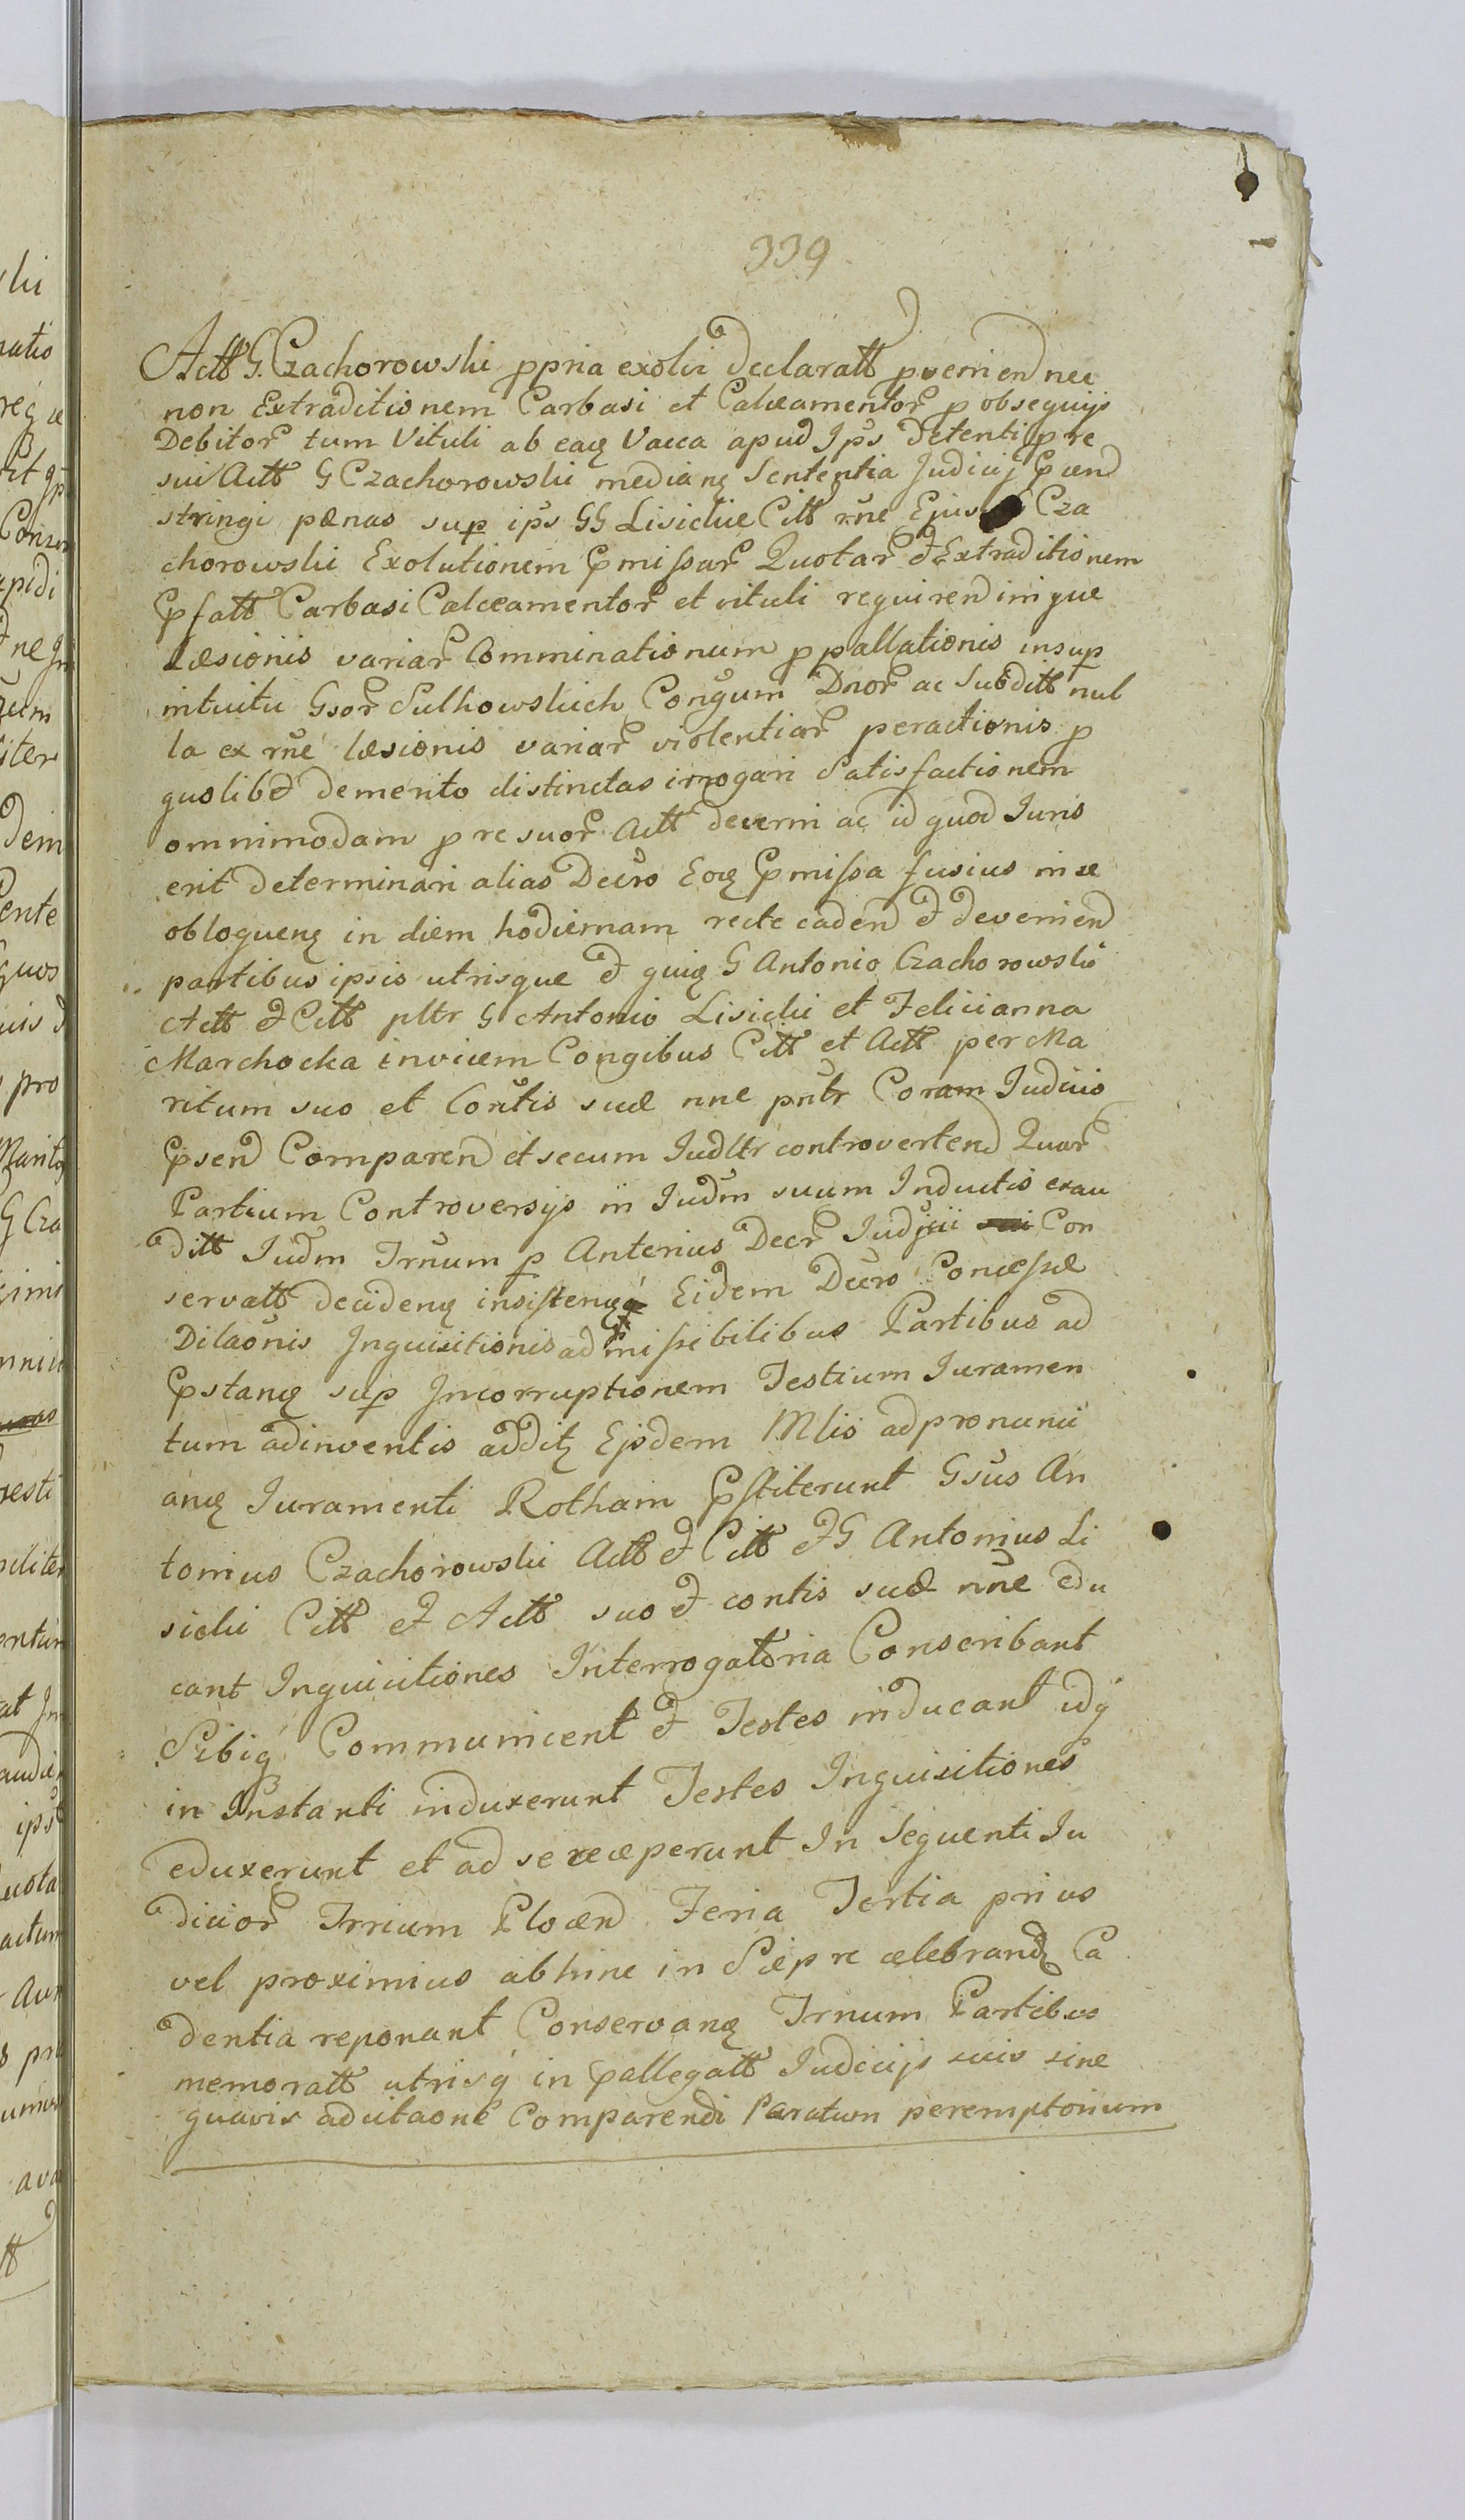 339
Actt G. Czachorowski ppria exolvi declaratt pveniend nec
non Extraditionem Carbasi et Calceamentor p obsequijs
Debitor tum Vituli ab eaq Vacca apud Ips detenti p re
sui Actt G Czachorowski median Sententia Judicij Pcend
stringi pænas sup ips GG Lisickie Citt rne Ejus Cza
chorowski Exolutionem Pmissar Quotar et Extraditionem
Pfatt Carbasi Calceamentor et vituli requirend inique
Læsionis variar Comminationum p pallationis insup
intuitu Gsor Sulkowskich Congum Dnor ac Subditt nul
la ex rne læsionis variar violentiar peractionis p
quolibet demerito distinctas irrogari Satisfactionem
omnimodam p re suor Actt decerni ac id quod Juris
erit determinari alias Decro Eoq Pmissa fusius in se
obloquenq in diem hodiernam recte cadend et deveniend
partibus ipsis utrisque et quiq G Antonio Czachorowski
Actt et Citt pltr G Antonio Lisicki et Felicianna
Marchocka invicem Congibus Citt et Actt per Ma
ritum suo et Contis suæ nne pntr Coram Judicio
Psend Comparend et secum Judltr controvertend Quar
Partium Controversijs in Judm suum Inductis exau
ditt Judm Trnum p Anterius Decr Judicii Con
servatt decidenq insistenq Eidem Decro Concessæ
Dilaonis Inquisitionis admissibilibus Partibus ad
Pstanq sup Incorruptionem Testium Juramen
tum adinventis additq Ejsdem Mlis ad pronunci
anq Juramenti Rotham Pstiterunt Gsus An
tonius Czachorowski Actt et Citt et G Antonius Li
sicki Citt et Actt suo et contis suæ nne edu
cant Inquisitiones Interrogatoria Conscribant
Sibiq Communicent et Testes inducant idq
in Instanti induxerunt Testes Inquisitiones
eduxerunt et ad se receperunt In Sequenti Ju
dicior Trrium Plocen Feria Tertia prius
vel proximius abhinc in Sciepre celebrandq Ca
dentia reponant Conservanq Trnum Partibus
memoratt utrisq in Pallegatt Judicijs suis sine
quavis adcitaone Comparendi Paratum peremptorium